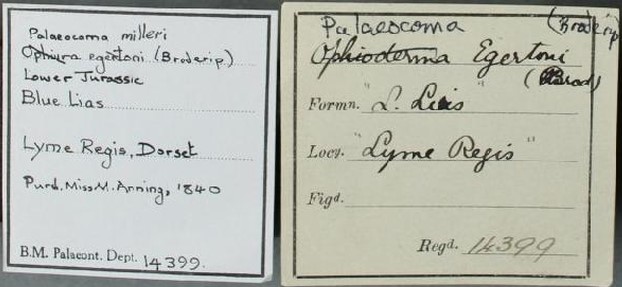 Palaeocoma milleri
Ophiura egertoni (Broderip.)
Lower Jurassic
Blue Lias
Lyme Regis, Dorset
Purd. Miss M. Anning, 1840
B.M. Palaeont. Dept. 14399.
Palaeocoma (Broderip)
Ophioderma Egertoni
Formn. "L. Lias"
Locy. "Lyme Regis"
Figd.
Regd. 14399